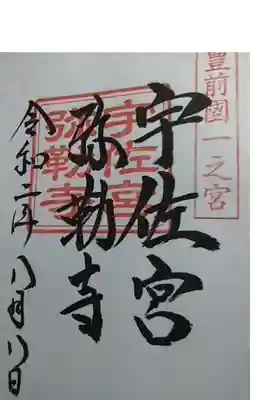 豊前國一之宮
宇佐宮
弥勒寺
宇佐宮
弥勒寺
令和二年八月八日